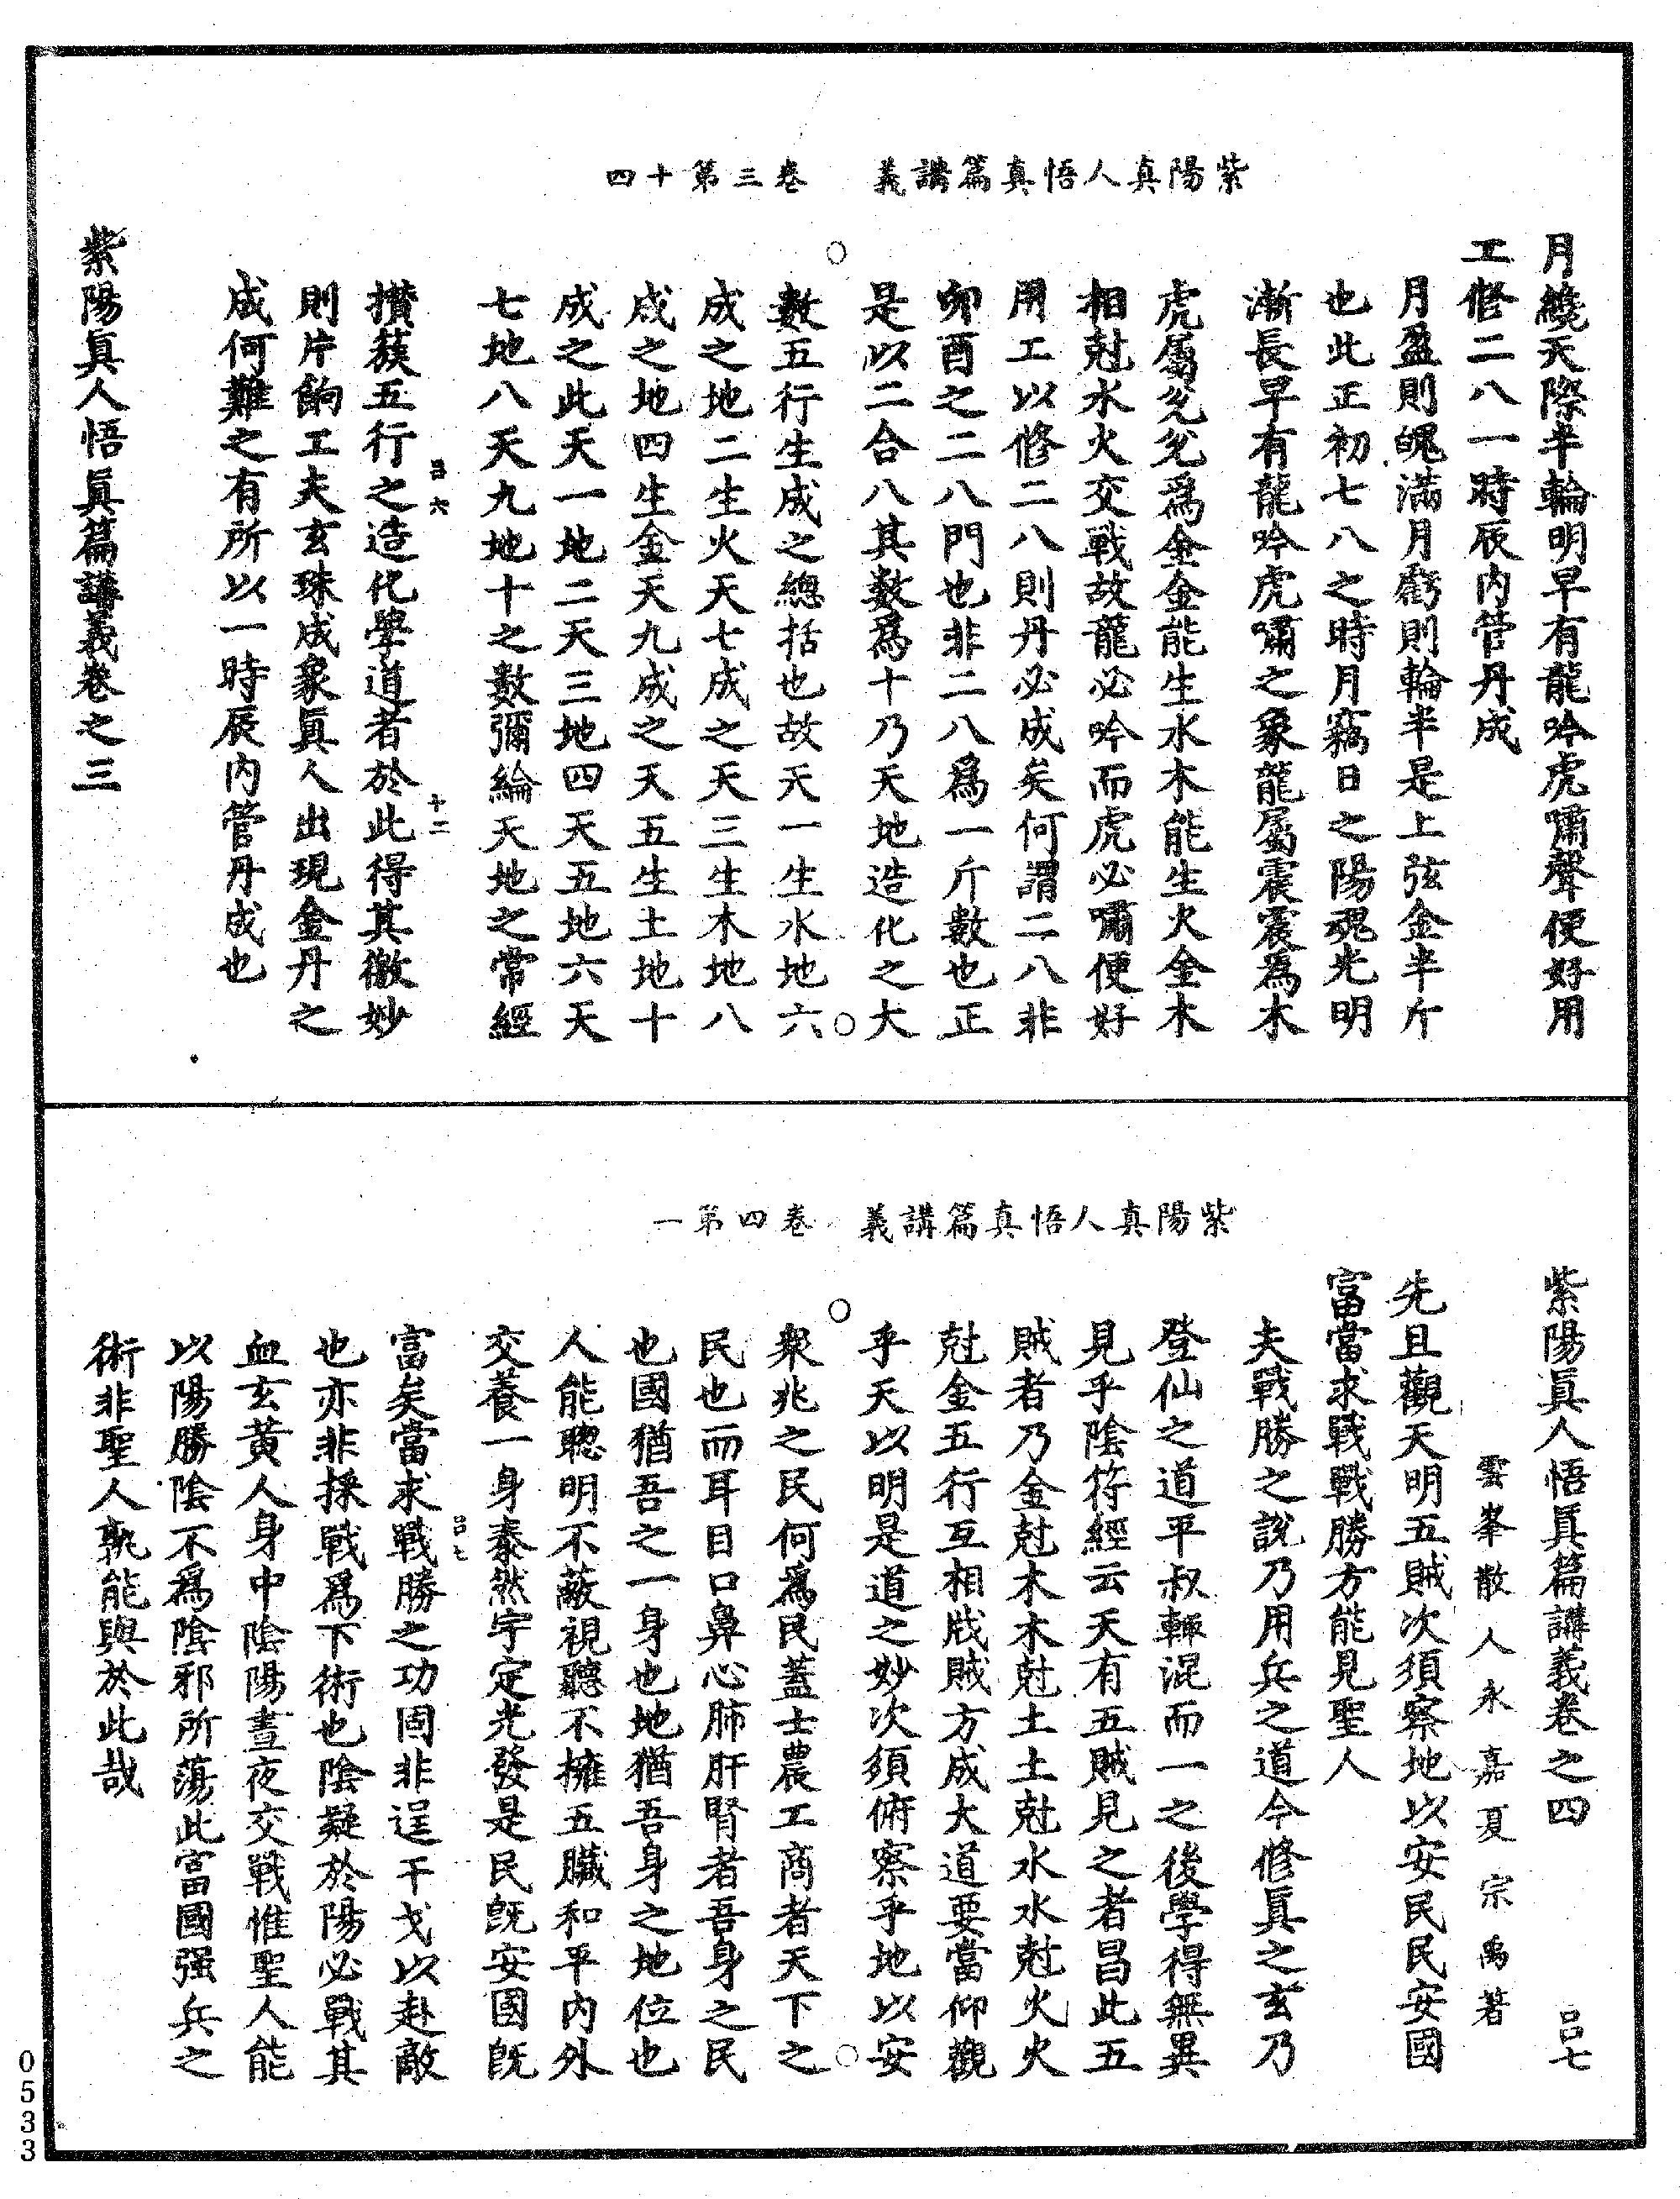 紫陽真人悟真篇講義　卷三第十四
月纔天際半輪明早有龍吟虎嘯聲便好用
工修二八一時辰內管丹成
月盈則魄滿月虧則輪半是上弦金半斤
也此正初七八之時月竊日之陽魂光明
漸長早有龍吟虎嘯之象龍屬震震為木
虎屬兊兊為金金能生水木能生火金木
相尅水火交戰故龍必吟而虎必嘯便好
用工以修二八則丹必成矣何謂二八非
卯酉之二八門也非二八為一斤數也正
是以二合八其數為十乃天地造化之大
數五行生成之總括也故天一生水地六
成之地二生火天七成之天三生木地八
成之地四生金天九成之天五生土地十
成之此天一地二天三地四天五地六天
七地八天九地十之數彌綸天地之常經
呂六
十二
攢蔟五行之造化學道者於此得其徽妙
則片餉工夫玄珠成象真人出現金丹之
成何難之有所以一時辰內管丹成也
紫陽眞人悟眞篇講義卷之三
紫陽真人悟真篇講義　卷四第一
紫陽眞人悟眞篇講義卷之四　呂七
雲峯散人永嘉夏宗禹著
先且觀天明五賊次須察地以安民民安國
富當求戰戰勝方能見聖人
夫戰勝之說乃用兵之道今修眞之玄乃
登仙之道平叔輙混而一之後學得無異
見乎陰符經云天有五賊見之者昌此五
賊者乃金尅木木尅土土尅水水尅火火
尅金五行互相戕賊方成大道要當仰觀
乎天以明是道之妙次須俯察乎地以安
衆兆之民何為民蓋士農工商者天下之
民也而耳目口鼻心肺肝腎者吾身之民
也國猶吾之一身也地猶吾身之地位也
人能聰明不蔽視聽不擁五臟和平內外
交養一身泰然宇定光發是民旣安國旣
呂七
富矣當求戰勝之功固非逞干戈以赴敵
也亦非採戰為下術也陰疑於陽必戰其
血玄黃人身中陰陽晝夜交戰惟聖人能
以陽勝陰不為陰邪所蕩此富國强兵之
術非聖人孰能與於此哉
0533